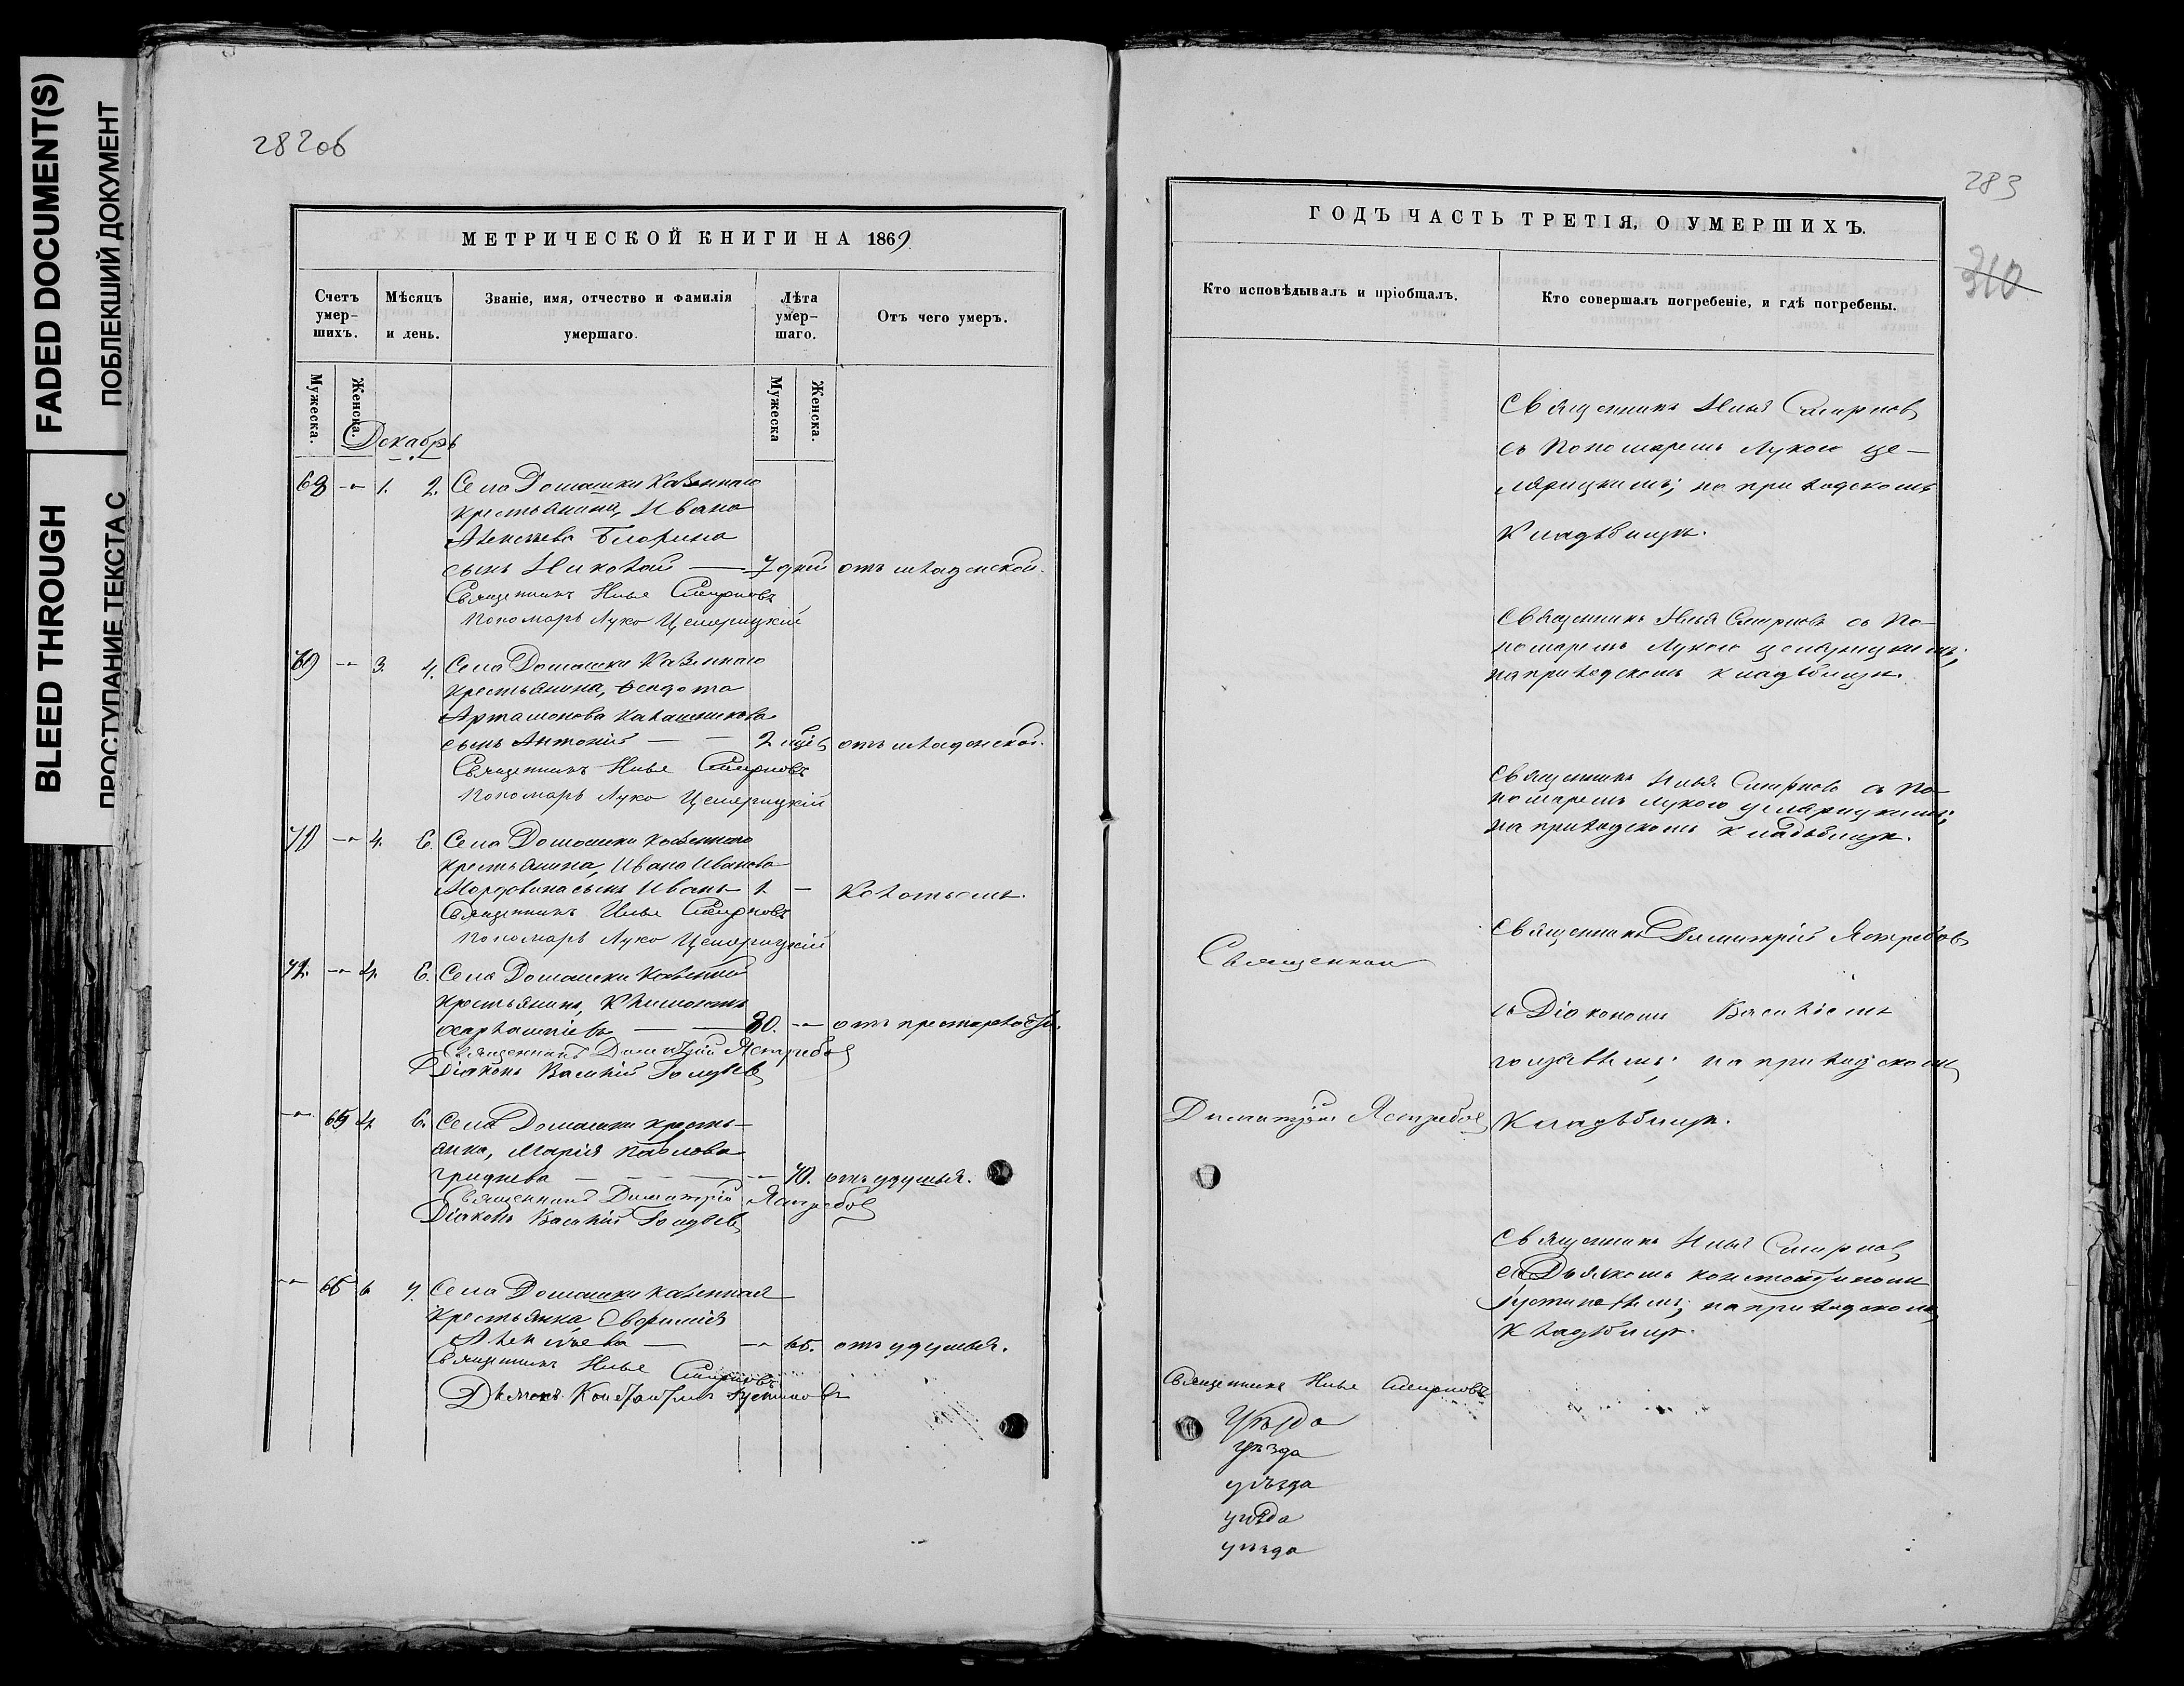 FADED DOCUMENT(S)
ПОБЛЕКШИЙ ДОКУМЕНТ
BLEED THROUGH
ПРОСТУПАНИЕ ТЕКСТА С
282об
МЕТРИЧЕСКОЙ КНИГИ НА 1869
Счетъ умер-шихъ.
Мѣсяцъ и день.
Званіе, имя, отчество и фамилія умершаго.
Лѣта умер-шаго.
Отъ чего умеръ.
Мужеска.
Женска.
Мужеска
Женска.
Декабрь
68 -"- 1. 2. Села Домашки Казеннаго
крестьянина, Ивана
Алексѣева
сынъ Николай — 7 дней отъ младенской.
Священникъ Илья Смирновъ
Пономарь Лука Цемерицкій
69 -"- 3. 4. Села Домашки Казеннаго
крестьянина, Ѳедота
Артамонова Калашникова
сынъ Антоній — — 2 отъ младенской.
Священникъ Илья Смирновъ
Пономарь Лука Цемерицкій
70 -"- 4. 6. Села Домашки Казеннаго
крестьянина, Ивана Иванова
Мордовина сынъ Иванъ 1. —
Священникъ Илья Смирновъ
Пономарь Лука Цемерицкій
-"- 4. 6. Села Домашки Казенный
крестьянинъ,
— — 80. -"- отъ престарѣлости.
Священникъ Димитрій Ястребов
Діаконъ Василій Голубев
-"- 65 4 6. Села Домашки кресть-
янка, Марія Павлова
Гриднева — — — -"- 70. отъ удушья.
Священникъ Димитрій Ястребов
Діаконъ Василій Голубев
-"- 66 6 Села Домашки казенная
крестьянка, Евфимія
Алексѣева — -"- 65. отъ удушья.
Священникъ Илья Смирновъ
Дьячокъ Константинъ Густиновъ
283
310
ГОДЪ ЧАСТЬ ТРЕТІЯ, О УМЕРШИХЪ.
Кто исповѣдывалъ и пріобщалъ.
Кто совершалъ погребеніе, и гдѣ погребены.
Священникъ Илья Смирнов
съ Пономаремъ Лукою Це-
мерицкимъ; на приходскомъ
Кладбищѣ.
Священникъ Илья Смирновъ съ По-
номаремъ Лукою Цемерицкимъ;
на приходскомъ кладбищѣ.
Священникъ Илья Смирновъ съ По-
номаремъ Лукою Цемерицкимъ;
на приходскомъ кладбищѣ.
Священник
Димитрій Ястребов
Священникъ Димитрій Ястребовъ
съ Діакономъ Василіемъ
Голубевымъ; на приходскомъ
Кладбищѣ.
Священникъ Илья Смирнов
съ Дьячкомъ Константиномъ
Густиновымъ; на приходском
Кладбищѣ.
Священникъ Илья Смирновъ
Уѣзда
уѣзда
уѣзда
уѣзда
уѣзда